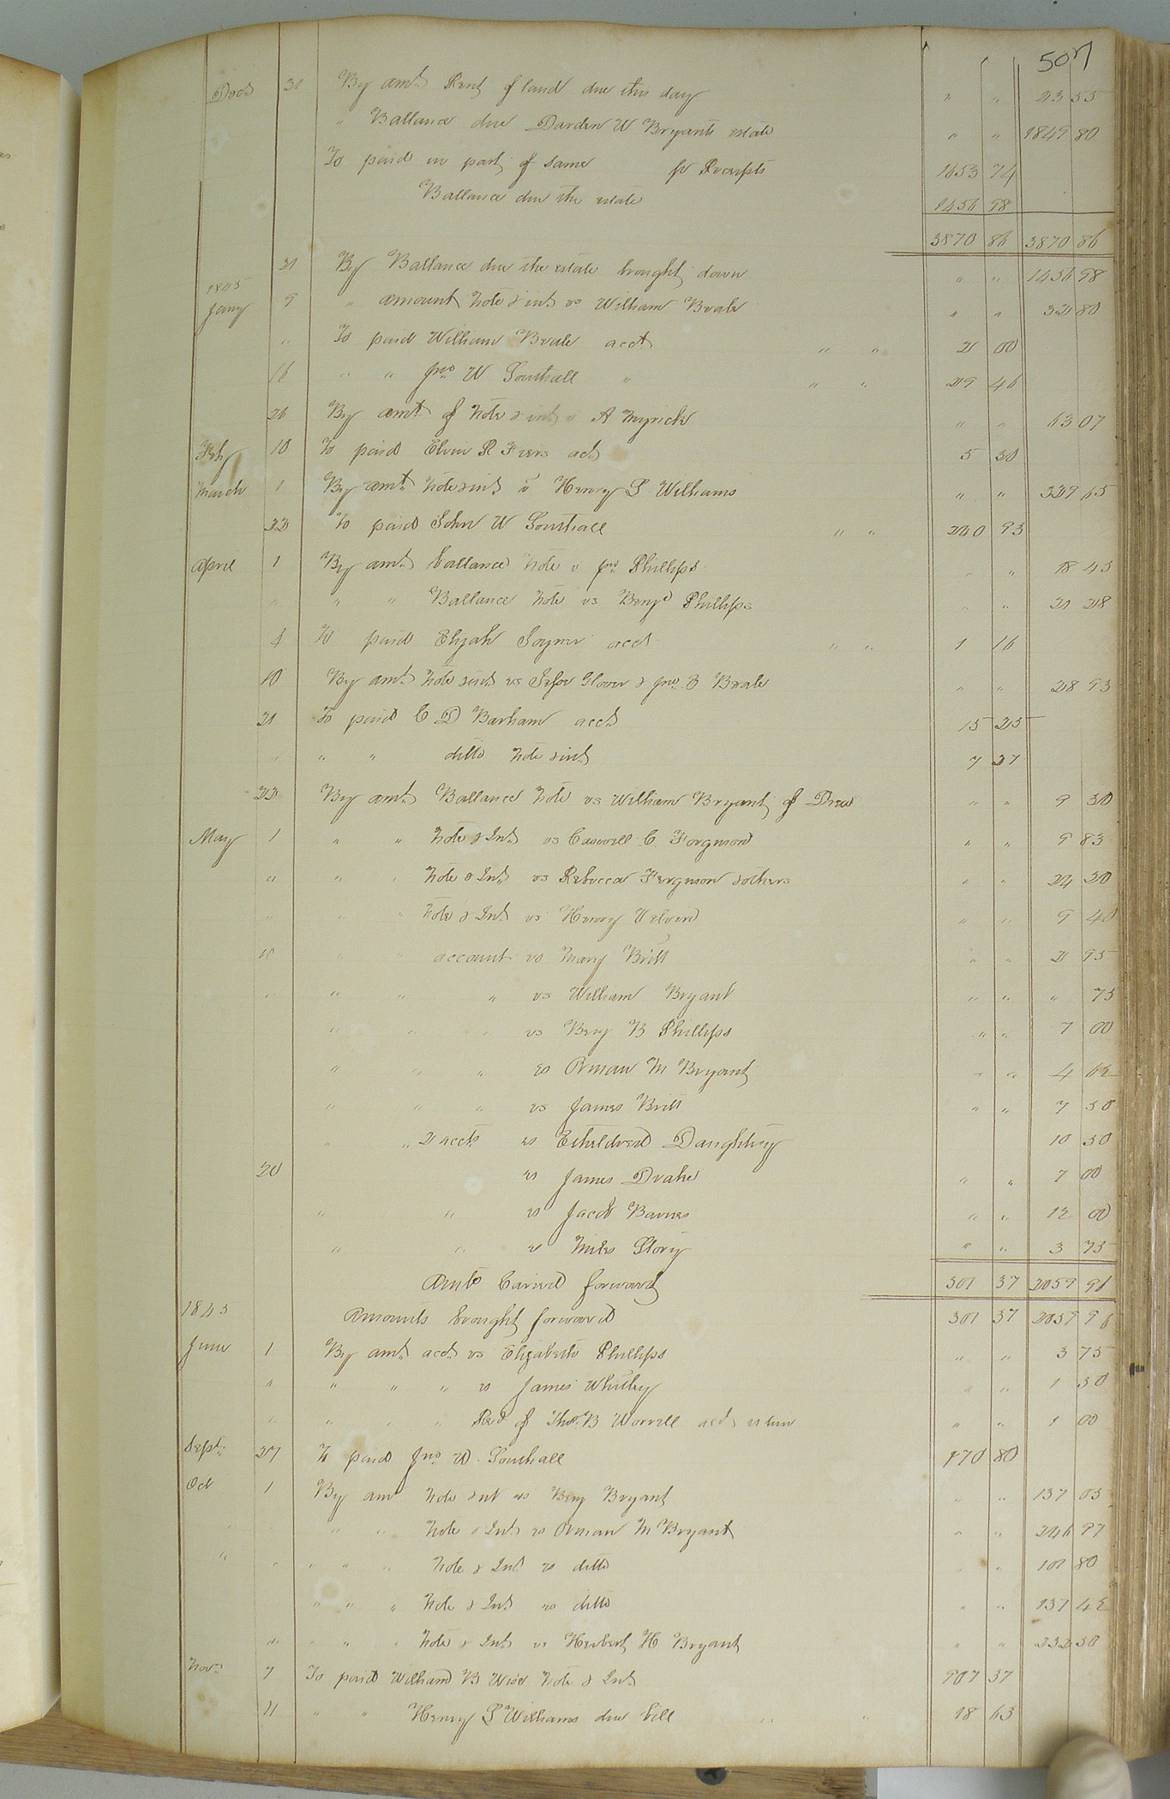 507
Decr 31 By amt Rent of land due this day " " 23 55
" Ballance due Darden W Bryants estate " " 1849 80
To paid in part of same pr Receipts 1653 74
Ballance due the estate 1456 98
3870 86 3870 86
31 By Ballance due the estate brought down " " 1456 98
1845
Jany 9 " amount Note & int vs William Beale " " 32 80
" To paid William Beale acct " " 2 00
16 " " Jno W Southall " " " 29 46
26 By amt of Note & int " A Myrick " " 63 07
Feby 10 To paid Elvin R acct 5 30
March 1 By amt Note & int vs Henry S Williams " " 329 65
22 To paid John W Southall " " 240 93
April 1 By amt ballance Note " Jno Phillips " " 18 45
" " " Ballance Note vs Benj Phillips " " 21 28
4 To paid Elijah Joyner acct " " 1 16
10 By amt Note & int vs Glover & Jno Beale " " 28 93
21 To paid C D Barham acct 15 25
" " " ditto Note & int 7 27
22 By amt Ballance Note vs William Bryant of Drew " " 9 30
May 1 " " Note & Int vs Caswell C. Ferguson " " 9 83
" " " Note & Int vs Rebecca Ferguson & others " " 24 20
" " " Note & Int vs Henry " " 9 40
" " account vs Mary Britt " " 2 95
" " " " vs William Bryant " " " 75
" " " vs Benj B Phillips " " 7 00
" " " vs Orman M Bryant " " 4 62
" " " vs James Britt " " 7 50
" " 2 accts vs Etheldred Daughtrey 10 50
20 vs James Drake " " 7 00
" " vs Jacob Barnes " " 12 00
" " vs Miles Story " " 3 75
Amts Carried forward 301 37 2059 96
1845 Amounts brought forward 301 37 2059 96
June 1 By amt acct vs Elizabeth Phillips " " 3 75
" " " " vs James Whitley " " 1 50
" " " Recd of Thos B Worrell acct " " 1 00
Sept 27 To paid Jno W. Southall 170 80
Oct 1 By am Note & int vs Benj Bryant " " 137 03
" " Note & Int vs Orman M Bryant " " 246 97
" " " " " Note & Int vs ditto " " 101 80
" " " Note & Int vs ditto " " 137 42
" " " " Note & Int vs Herbert H Bryant " " 232 50
Novr 7 To paid William B Wise Note & Int 907 37
11 " " Henry S Williams due bill " " 18 63